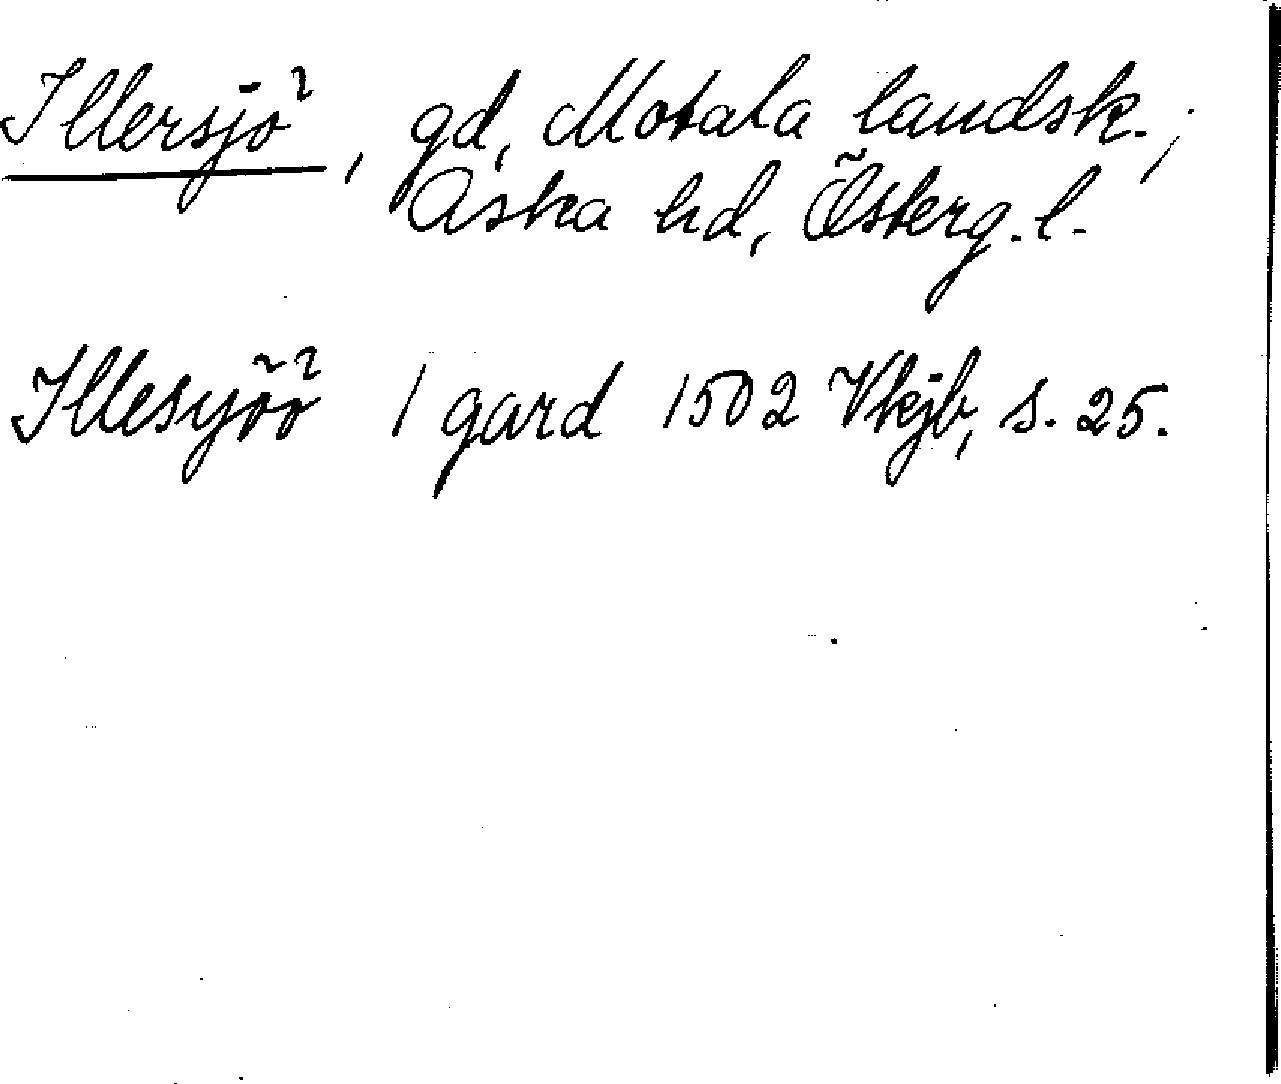 Illersjö, gd, Motala landsk.,
Aska hd, Österg. l.
Illesyöö 1 gard 1502 Vkjb, s. 25.